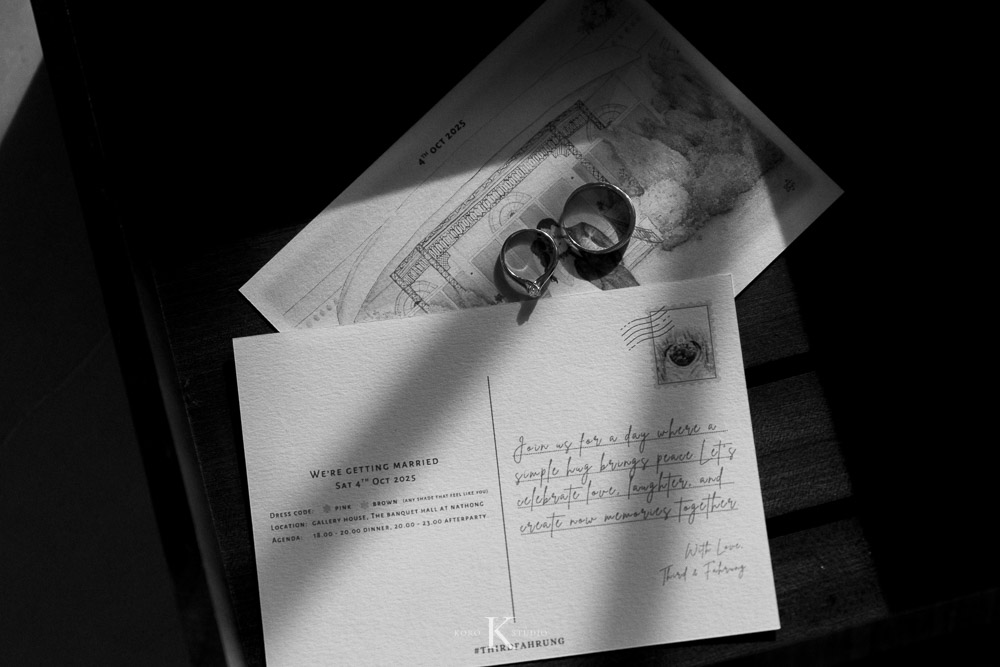 4TH OCT 2025
WE'RE GETTING MARRIED
SAT 4TH OCT 2025
DRESS CODE: PINK BROWN (ANY SHADE THAT FEEL LIKE YOU)
LOCATION: GALLERY HOUSE, THE BANQUET HALL AT NATHONG
AGENDA: 18.00 - 20.00 DINNER, 20.00 - 23.00 AFTERPARTY
Join us for a day where a
simple hug brings peace Let's
celebrate love, laughter, and
create now memories together
With Love,
Third & Fahrung
KORO K STUDIO
#THIRDFAHRUNG